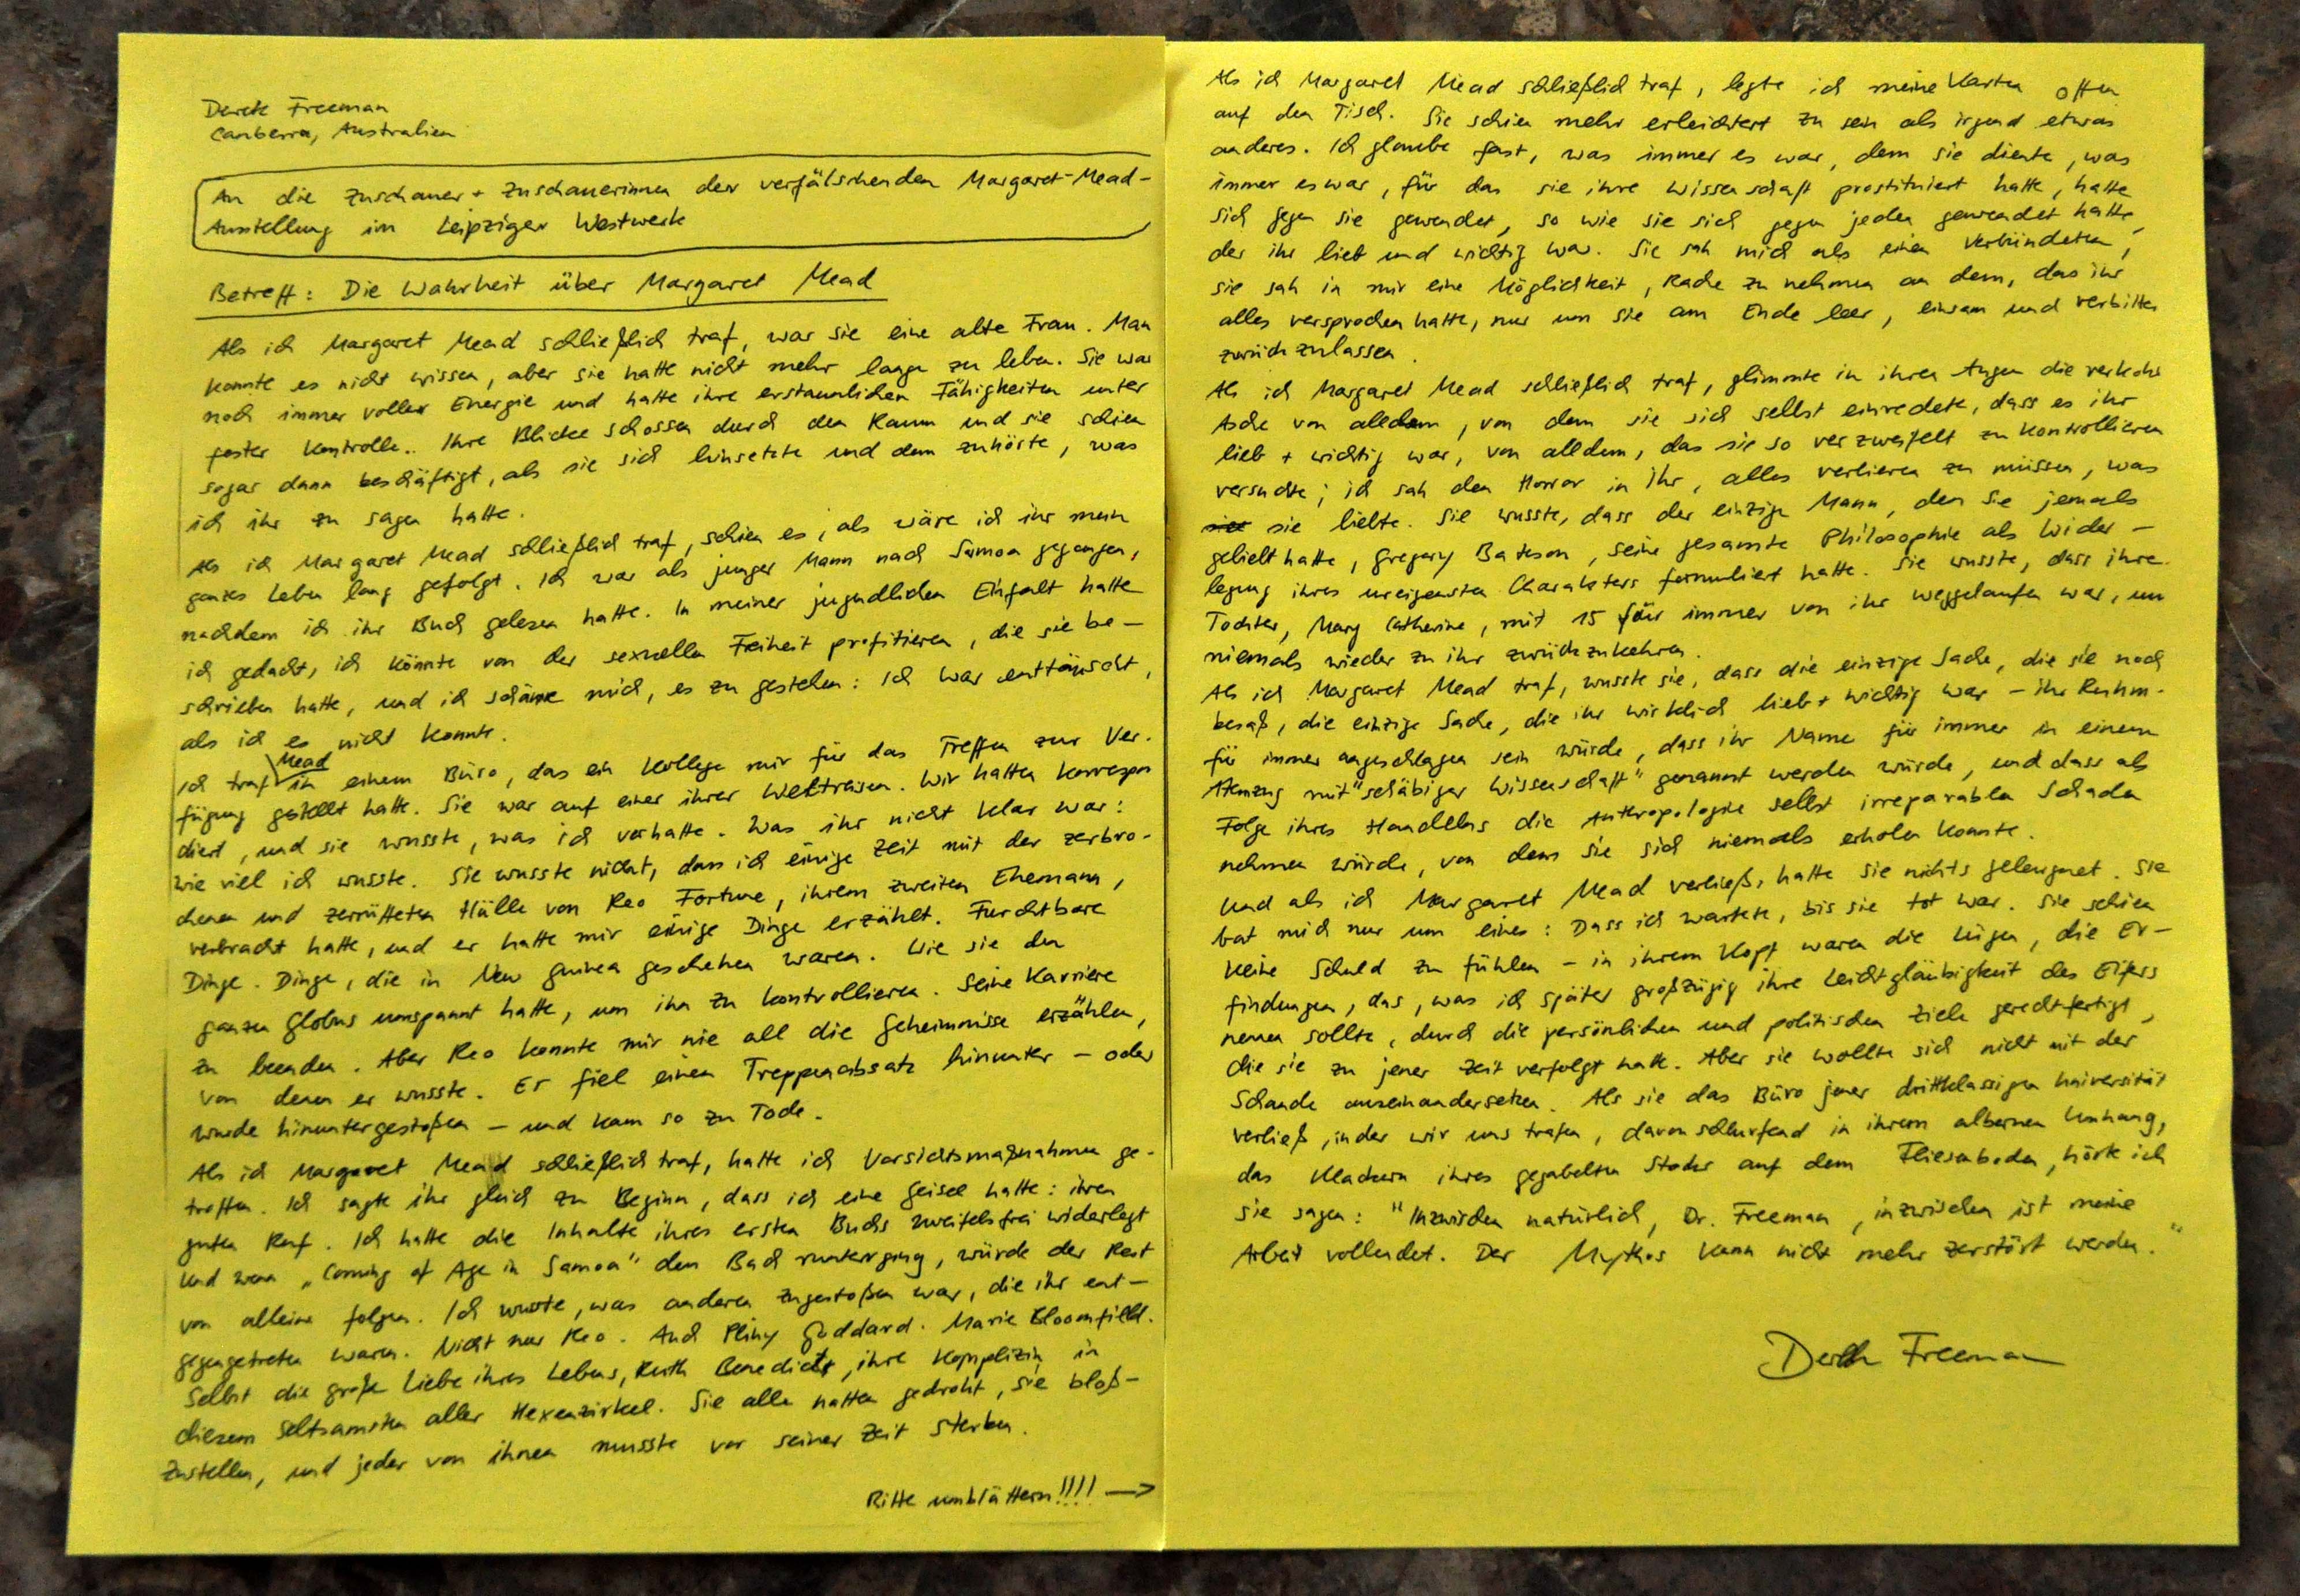 Derek Freeman
Canberra, Australien
An die Zuschauer + Zuschauerinnen der verfälschenden Margaret-Mead-
Ausstellung im Leipziger Westwerk
Betreff: Die Wahrheit über Margaret Mead
Als ich Margaret Mead schließlich traf, war sie eine alte Frau. Man
konnte es nicht wissen, aber sie hatte nicht mehr lange zu leben. Sie war
noch immer voller Energie und hatte ihre erstaunlichen Fähigkeiten unter
fester Kontrolle.. Ihre Blicke schossen durch den Raum und sie schien
sogar dann beschäftigt, als sie sich hinsetzte und dem zuhörte, was
ich ihr zu sagen hatte.
Als ich Margaret Mead schließlich traf, schien es, als wäre ich ihr mein
ganzes Leben lang gefolgt. Ich war als junger Mann nach Samoa gegangen,
nachdem ich ihr Buch gelesen hatte. In meiner jugendlichen Einfalt hatte
ich gedacht, ich könnte von der sexuellen Freiheit profitieren, die sie be-
schrieben hatte, und ich schäme mich, es zu gestehen: ich war enttäuscht,
als ich es nicht konnte.
Ich traf Mead in einem Büro, das ein Kollege mir für das Treffen zur Ver-
fügung gestellt hatte. Sie war auf einer ihrer Weltreisen. Wir hatten korrespon
diert, und sie wusste, was ich vorhatte. Was ihr nicht klar war:
wie viel ich wusste. Sie wusste nicht, dass ich einige Zeit mit der zerbro-
chenen und zerrütteten Hülle von Reo Fortune, ihrem zweiten Ehemann,
verbracht hatte, und er hatte mir einige Dinge erzählt. Furchtbare
Dinge. Dinge, die in New Guinea geschehen waren. Wie sie den
ganzen Globus umspannt hatte, um ihn zu kontrollieren. Seine Karriere
zu beenden. Aber Reo konnte mir nie all die Geheimnisse erzählen,
von denen er wusste. Er fiel einen Treppenabsatz hinunter – oder
wurde hinuntergestoßen – und kam so zu Tode.
Als ich Margaret Mead schließlich traf, hatte ich Vorsichtsmaßnahmen ge-
troffen. Ich sagte ihr gleich zu Beginn, dass ich eine Geisel hatte: ihren
guten Ruf. Ich hatte die Inhalte ihres ersten Buchs zweifelsfrei widerlegt
und wenn „Coming of Age in Samoa" den Bach runterging, würde der Rest
von alleine folgen. Ich wusste, was anderen zugestoßen war, die ihr ent-
gegengetreten waren. Nicht nur Reo. Auch Pliny Goddard. Marie Bloomfield.
Selbst die große Liebe ihres Lebens, Ruth Benedict, ihre Komplizin in
diesem seltsamsten aller Hexenzirkel. Sie alle hatten gedroht, sie bloß-
zustellen, und jeder von ihnen musste vor seiner Zeit sterben.
Bitte umblättern!!!! →
Als ich Margaret Mead schließlich traf, legte ich meine Karten offen
auf den Tisch. Sie schien mehr erleichtert zu sein als irgend etwas
anderes. Ich glaube fast, was immer es war, dem sie diente, was
immer es war, für das sie ihre Wissenschaft prostituiert hatte, hatte
sich gegen sie gewendet, so wie sie sich gegen jeden gewendet hatte,
der ihr lieb und wichtig war. Sie sah mich als einen Verbündeten,
sie sah in mir eine Möglichkeit, Rache zu nehmen an dem, das ihr
alles versprochen hatte, nur um sie am Ende leer, einsam und verbittert
zurückzulassen.
Als ich Margaret Mead schließlich traf, glimmte in ihren Augen die verkohlte
Asche von alledem, von dem sie sich selbst einredete, dass es ihr
lieb + wichtig war, von alldem, das sie so verzweifelt zu kontrollieren
versuchte; ich sah den Horror in ihr, alles verlieren zu müssen, was
sie liebte. Sie wusste, dass der einzige Mann, den sie jemals
geliebt hatte, Gregory Bateson, seine gesamte Philosophie als Wider-
legung ihres ureigensten Charakters formuliert hatte. Sie wusste, dass ihre
Tochter, Mary Catherine, mit 15 für immer von ihr weggelaufen war, um
niemals wieder zu ihr zurückzukehren.
Als ich Margaret Mead traf, wusste sie, dass die einzige Sache, die sie noch
besaß, die einzige Sache, die ihr wirklich lieb + wichtig war – ihr Ruhm-
für immer angeschlagen sein würde, dass ihr Name für immer in einem
Atemzug mit "schäbiger Wissenschaft" genannt werden würde, und dass als
Folge ihres Handelns die Anthropologie selbst irreparablen Schaden
nehmen würde, von dem sie sich niemals erholen konnte.
Und als ich Margaret Mead verließ, hatte sie nichts geleugnet. Sie
bat mich nur um eines: Dass ich wartete, bis sie tot war. Sie schien
keine Schuld zu fühlen – in ihrem Kopf waren die Lügen, die Er-
findungen, das, was ich später großzügig ihre Leichtgläubigkeit des Eifers
nennen sollte, durch die persönlichen und politischen Ziele gerechtfertigt,
die sie zu jener Zeit verfolgt hatte. Aber sie wollte sich nicht mit der
Schande auseinandersetzen. Als sie das Büro jener drittklassigen Universität
verließ, in der wir uns trafen, davonschlurfend in ihrem albernen Umhang,
das Klackern ihres gegabelten Stocks auf dem Fliesenboden, hörte ich
sie sagen: "Inzwischen natürlich, Dr. Freeman, inzwischen ist meine
Arbeit vollendet. Der Mythos kann nicht mehr zerstört werden."
Derek Freeman